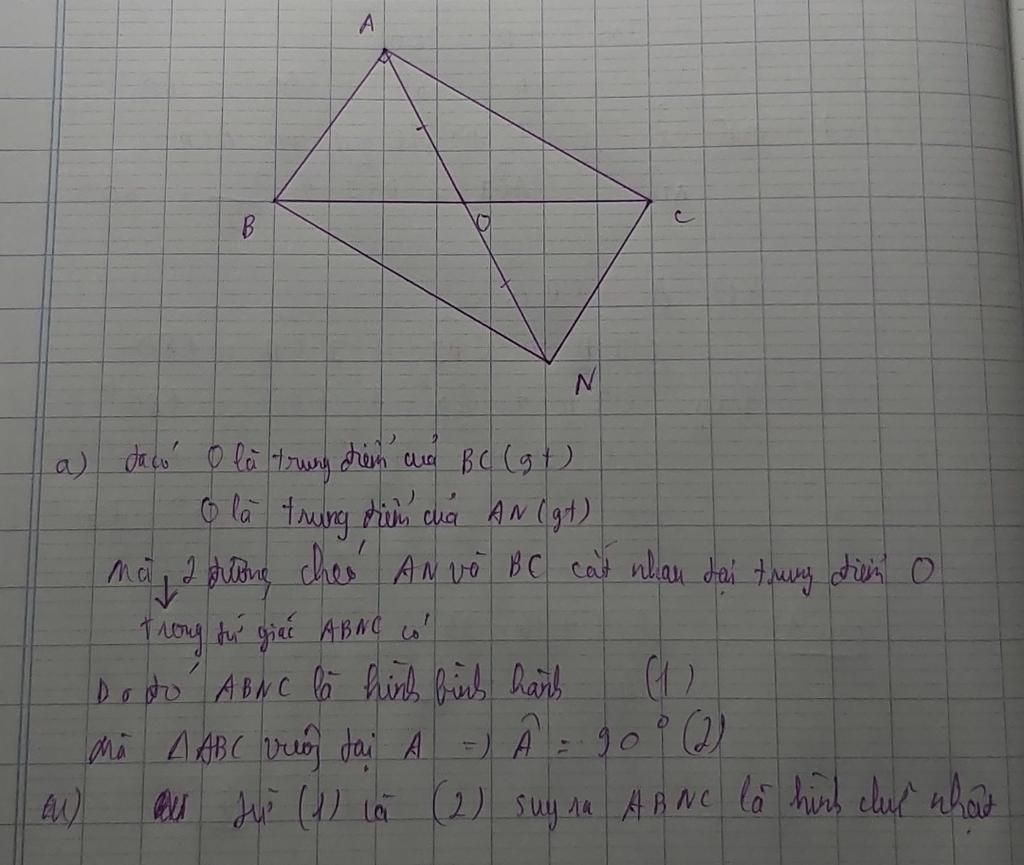 A
B
O
C
N
a) ta có O là trung điểm của BC (gt)
O là trung điểm của AN (gt)
Mà 2 đường chéo AN và BC cắt nhau tại trung điểm O
trong tứ giác ABNC có
Do đó ABNC là hình bình hành (1)
mà ΔABC vuông tại A => Â = 90° (2)
từ (1) và (2) suy ra ABNC là hình chữ nhật